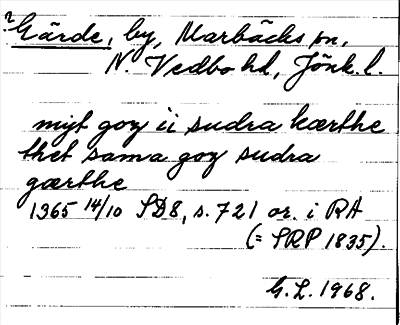 ?Gärde, by, Marbäcks sn,
N. Vedbo hd, Jönk. l.
mijt goz ii sudra kærthe
thet sama goz sudra
gærthe
1365 14/10 SD8, s. 721 or. i RA
(= SRP 1835).
G.L. 1968.